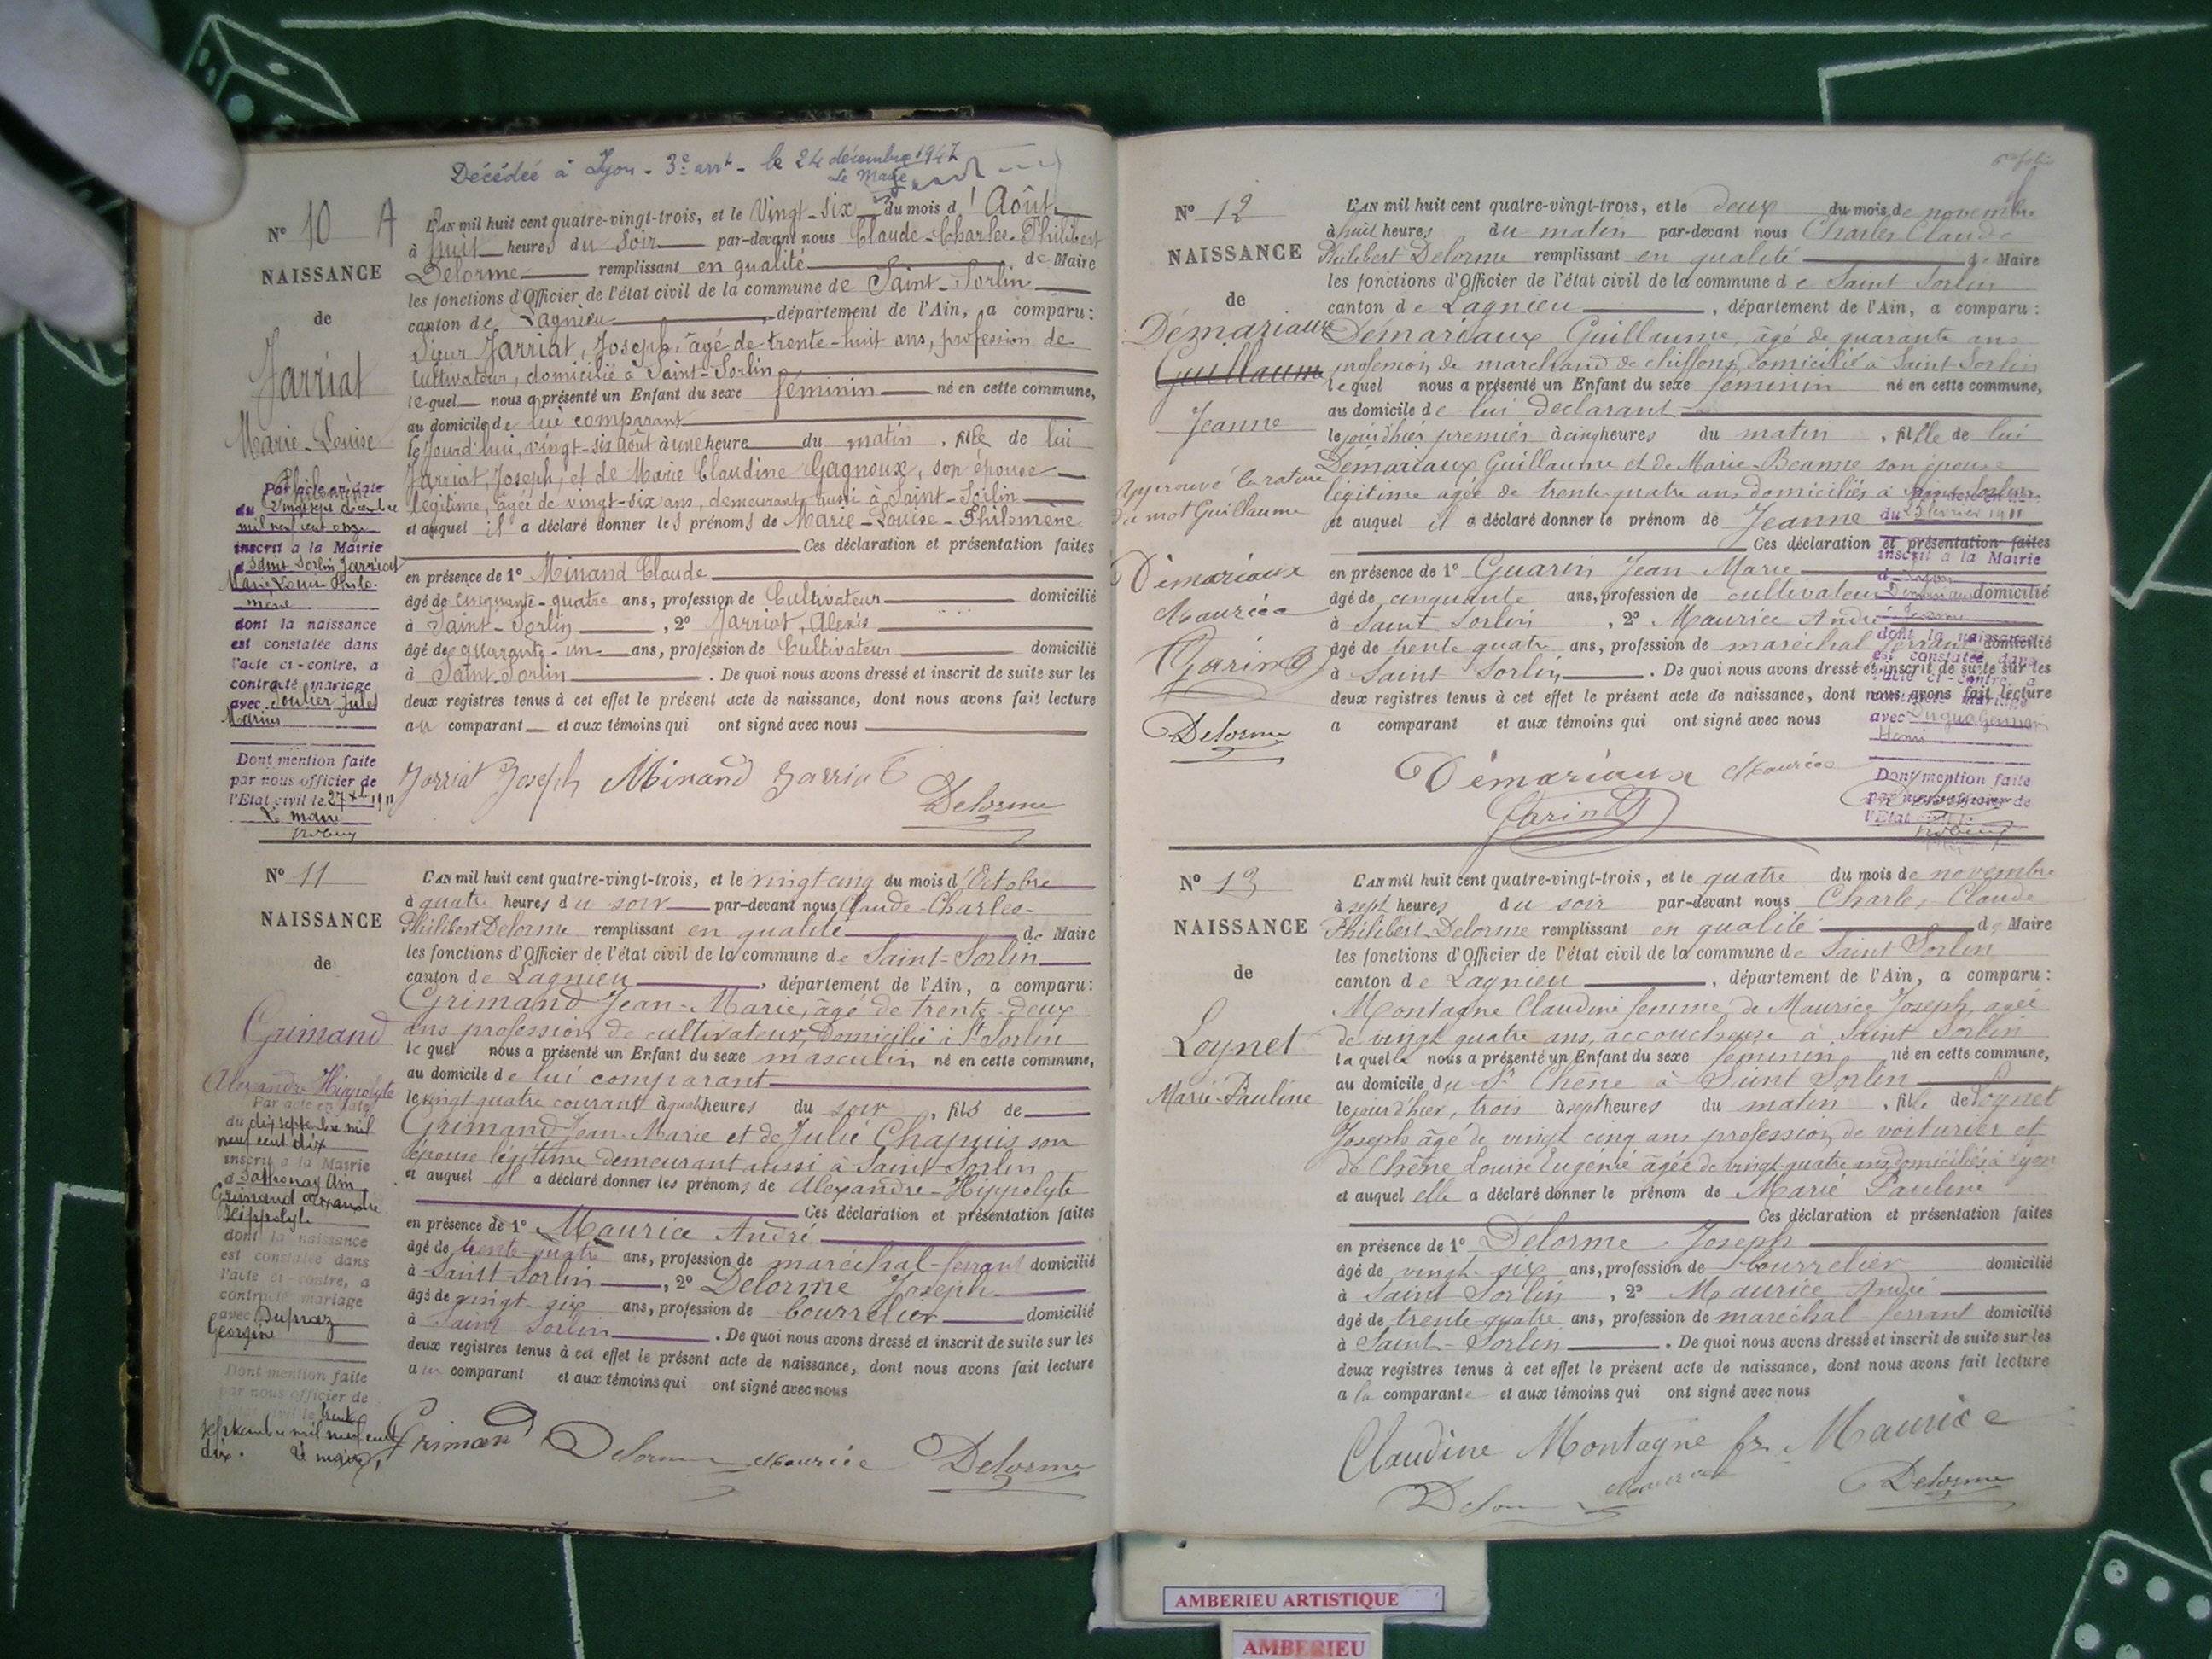 Décédée à Lyon - 3e arrt - le 24 décembre 1947
Le Maire
N° 10 A
NAISSANCE
de
Jarriat
Marie-Louise
Philomène
Par acte en date
du vingt sept décembre
mil neuf cent onze
inscrit a la Mairie
d Saint Sorlin Jarriat
Marie Louise Philo-
mène
dont la naissance
est constatée dans
l'acte ci-contre, a
contracté mariage
avec Soulier Jules
Marius
Dont mention faite
par nous officier de
l'Etat civil le 27 Xbre 1911
Le maire
L'AN mil huit cent quatre-vingt-trois, et le Vingt-six du mois d'Août
à huit heures du Soir par-devant nous Claude-Charles-Philibert
Delorme remplissant en qualité de Maire
les fonctions d'Officier de l'état civil de la commune de Saint-Sorlin
canton de Lagnieu, département de l'Ain, a comparu:
Sieur Jarriat, Joseph, âgé de trente-huit ans, profession de
Cultivateur, domicilié à Saint-Sorlin
lequel nous a présenté un Enfant du sexe féminin né en cette commune,
au domicile de lui comparant
le Jourd'hui, vingt-six août à une heure du matin, fille de lui
Jarriat, Joseph, et de Marie Claudine Gagnoux, son épouse
légitime, âgée de vingt-six ans, demeurant aussi à Saint-Sorlin
et auquel il a déclaré donner les prénoms de Marie-Louise-Philomène
Ces déclaration et présentation faites
en présence de 1° Minand Claude
âgé de cinquante-quatre ans, profession de Cultivateur domicilié
à Saint-Sorlin, 2° Jarriat, Alexis
âgé de quarante-un ans, profession de Cultivateur domicilié
à Saint-Sorlin. De quoi nous avons dressé et inscrit de suite sur les
deux registres tenus à cet effet le présent acte de naissance, dont nous avons fait lecture
au comparant et aux témoins qui ont signé avec nous
Jarriat Joseph Minand Jarriat
Delorme
N° 11
NAISSANCE
de
Grimand
Alexandre Hippolyte
Par acte en date
du dix septembre mil
neuf cent dix
inscrit a la Mairie
d Sathonay Ain
Grimand Alexandre
Hippolyte
dont la naissance
est constatée dans
l'acte ci-contre, a
contracté mariage
avec Dupraz
Georgine
Dont mention faite
par nous officier de
l'Etat civil le trente
septembre mil neuf cent
dix. Le maire,
L'AN mil huit cent quatre-vingt-trois, et le vingt cinq du mois d'Octobre
à quatre heures du soir par-devant nous Claude-Charles-
Philibert Delorme remplissant en qualité de Maire
les fonctions d'Officier de l'état civil de la commune de Saint-Sorlin
canton de Lagnieu, département de l'Ain, a comparu:
Grimand Jean-Marie, âgé de trente-deux
ans profession de cultivateur, Domicilié à St Sorlin
lequel nous a présenté un Enfant du sexe masculin né en cette commune,
au domicile de lui comparant
le vingt quatre courant à quatre heures du soir, fils de
Grimand Jean-Marie et de Julie Chapuis son
épouse légitime demeurant aussi à Saint-Sorlin
et auquel il a déclaré donner les prénoms de Alexandre-Hippolyte
Ces déclaration et présentation faites
en présence de 1° Maurice André
âgé de trente-quatre ans, profession de maréchal-ferrant domicilié
à Saint Sorlin, 2° Delorme Joseph
âgé de vingt-six ans, profession de bourrelier domicilié
à Saint Sorlin. De quoi nous avons dressé et inscrit de suite sur les
deux registres tenus à cet effet le présent acte de naissance, dont nous avons fait lecture
au comparant et aux témoins qui ont signé avec nous
Grimand Delorme Maurice Delorme
N° 12
NAISSANCE
de
Démariaux
Guillaume
Jeanne
Approuvé la rature
du mot Guillaume
Démariaux
Maurice
Garin
Delorme
L'AN mil huit cent quatre-vingt-trois, et le deux du mois de novembre
à huit heures du matin par-devant nous Charles Claude
Philibert Delorme remplissant en qualité de Maire
les fonctions d'Officier de l'état civil de la commune de Saint Sorlin
canton de Lagnieu, département de l'Ain, a comparu:
Démariaux Guillaume, âgé de quarante ans
profession de marchand de chiffons, domicilié à Saint Sorlin
lequel nous a présenté un Enfant du sexe féminin né en cette commune,
au domicile de lui déclarant
le jourd'hier premier à cinq heures du matin, fille de lui
Démariaux Guillaume et de Marie-Beanne son épouse
légitime agée de trente quatre ans domiciliés à Saint Sorlin
et auquel il a déclaré donner le prénom de Jeanne
Ces déclaration et présentation faites
en présence de 1° Guarin Jean Marie
âgé de cinquante ans, profession de cultivateur domicilié
à Saint Sorlin, 2° Maurice André
âgé de trente quatre ans, profession de maréchal ferrant domicilié
à Saint Sorlin. De quoi nous avons dressé et inscrit de suite sur les
deux registres tenus à cet effet le présent acte de naissance, dont nous avons fait lecture
a comparant et aux témoins qui ont signé avec nous
Démariaux Maurice
Garin
février 1911
inscrit a la Mairie
d Lyon
Jeanne
dont la naissance
est constatée dans
l'acte ci-contre, a
contracté mariage
avec
Henri
Dont mention faite
par nous officier de
l'Etat
N° 13
NAISSANCE
de
Loynet
Marie-Pauline
L'AN mil huit cent quatre-vingt-trois, et le quatre du mois de novembre
à sept heures du soir par-devant nous Charles Claude
Philibert Delorme remplissant en qualité de Maire
les fonctions d'Officier de l'état civil de la commune de Saint Sorlin
canton de Lagnieu, département de l'Ain, a comparu:
Montagne Claudine femme de Maurice Joseph, agée
de vingt quatre ans, accoucheuse à Saint Sorlin
laquelle nous a présenté un Enfant du sexe féminin né en cette commune,
au domicile du Sr Chêne à Saint Sorlin
le jourd'hier, trois à sept heures du matin, fille de Loynet
Joseph âgé de vingt cinq ans profession de voiturier et
de Chêne Louise Eugénie âgée de vingt quatre ans domiciliés à Lyon
et auquel elle a déclaré donner le prénom de Marie Pauline
Ces déclaration et présentation faites
en présence de 1° Delorme Joseph
âgé de vingt-six ans, profession de bourrelier domicilié
à Saint Sorlin, 2° Maurice André
âgé de trente quatre ans, profession de maréchal ferrant domicilié
à Saint-Sorlin. De quoi nous avons dressé et inscrit de suite sur les
deux registres tenus à cet effet le présent acte de naissance, dont nous avons fait lecture
a la comparante et aux témoins qui ont signé avec nous
Claudine Montagne fe Maurice
Maurice Delorme
AMBERIEU ARTISTIQUE
AMBERIEU